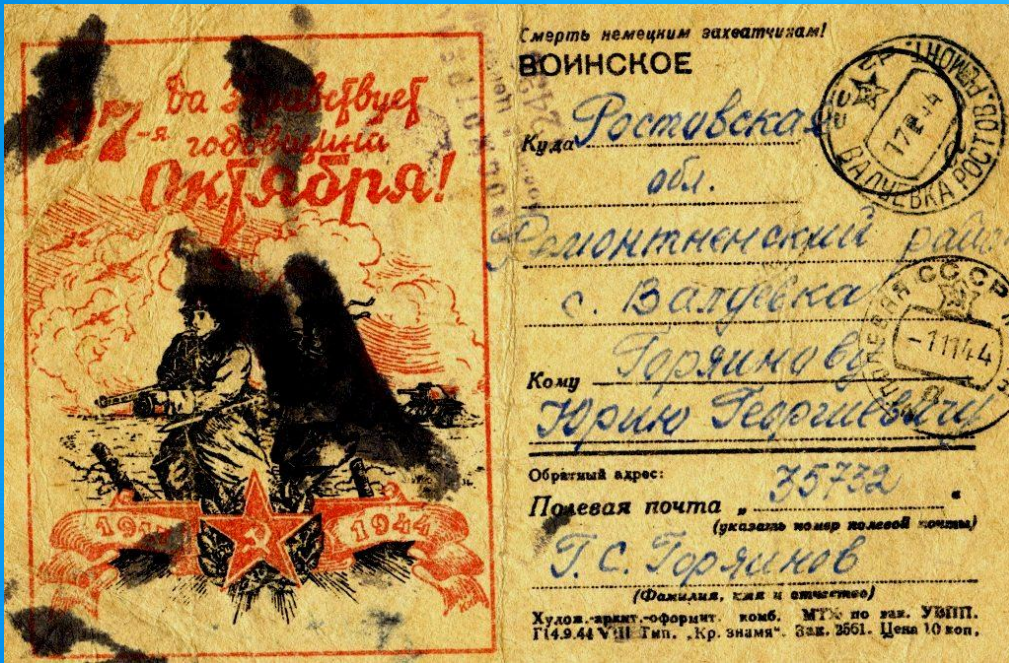 27-я
Да Здравствует
годовщина
Октября!
1917
1944
Смерть немецким захватчикам!
ВОИНСКОЕ
Куда Ростовская
обл.
Ремонтненский район
с. Валуевка
Кому Горяинову
Юрию Георгиевичу
Обратный адрес:
Полевая почта „ 35732 "
(указать номер полевой почты)
Г. С. Горяинов
(Фамилия, имя и отчество)
Худож.-архит.-оформит. комб. по зак. УВПП.
Г14.9.44 VIII Тип. „Кр. знамя". Зак. 2561. Цена 10 коп.
СССР
ВАЛУЕВКА РОСТОВ. РЕМОНТ.
ПОЛЕВАЯ
СССР
-11144